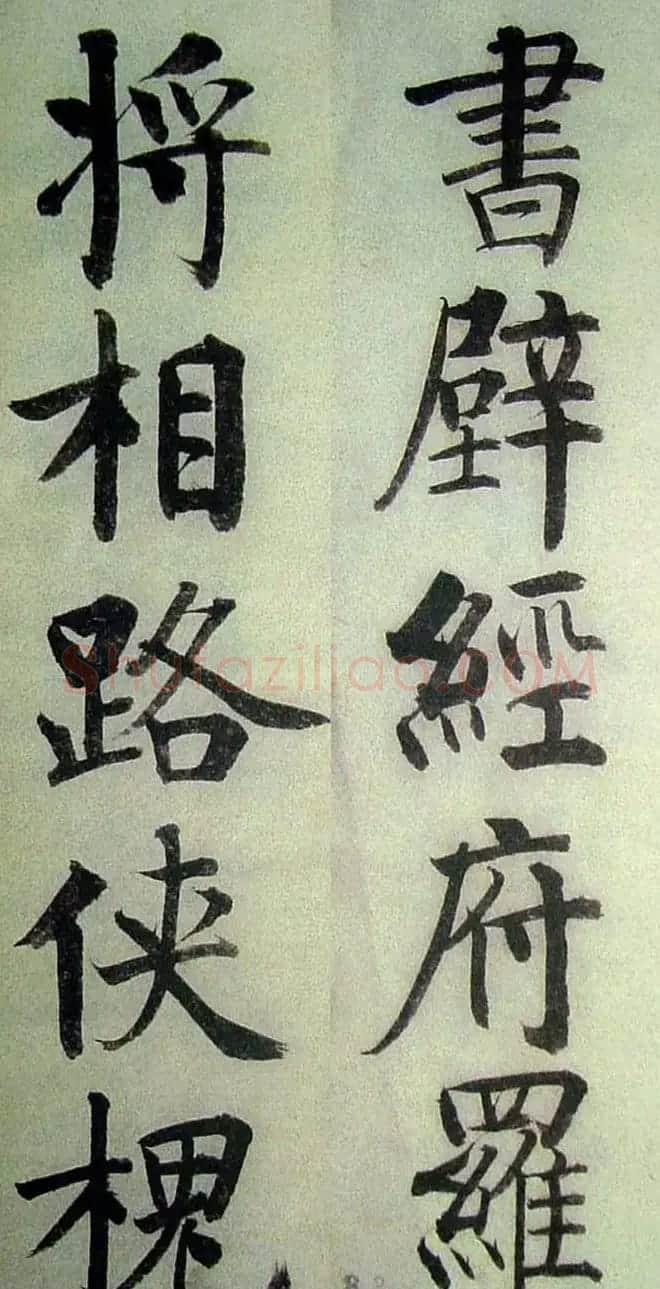 書壁經府羅
将相路侠槐
Shufaziliao.COM
82